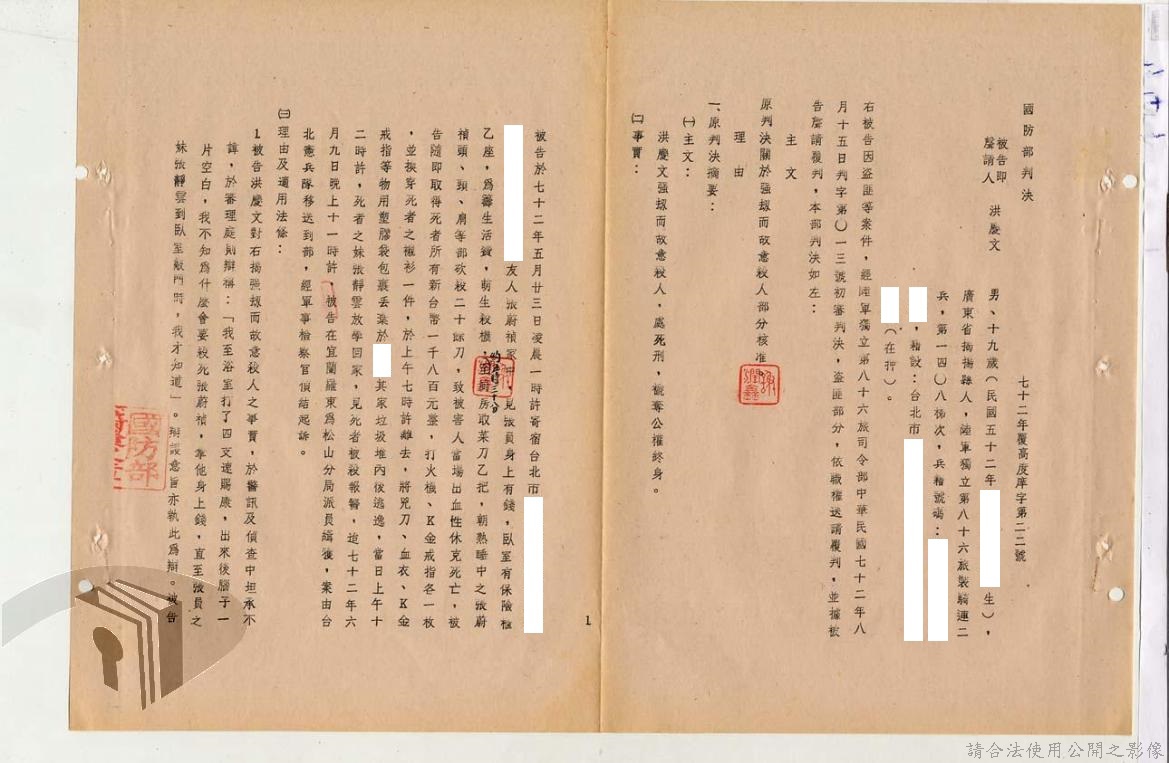 國防部判決
七十二年覆高度庠字第二二號
被告即
聲請人
洪慶文
男、十九歲(民國五十二年
生),
廣東省揭揚縣人,陸軍獨立第八十六旅裝騎連二
兵,第一四○八梯次,兵籍號碼:
,籍設:台北市
(在押)。
右被告因盜匪等案件,經陸軍獨立第八十六旅司令部中華民國七十二年八
月十五日判字第○一三號初審判決,盜匪部分,依職權送請覆判,並據被
告聲請覆判,本部判決如左:
主文
原判決關於強刼而故意殺人部分核准。
理由
一、原判決摘要:
㈠主文:
洪慶文強刼而故意殺人,處死刑,褫奪公權終身。
㈡事實:
1
被告於七十二年五月廿三日凌晨一時許寄宿台北市
友人張蔚禎家中,見張員身上有錢,臥室有保險櫃
乙座,爲籌生活費,萌生殺機,
約五時三十分
至廚房取菜刀乙把,朝熟睡中之張蔚
禎頭、頸、肩等部砍殺二十餘刀,致被害人當場出血性休克死亡,被
告隨即取得死者所有新台幣一千八百元整,打火機、K金戒指各一枚
,並換穿死者之襯衫一件,於上午七時許離去,將兇刀、血衣、K金
戒指等物用塑膠袋包裹丟棄於
其家垃圾堆內後逃逸,當日上午十
二時許,死者之妹張靜雲放學回家,見死者被殺報警,迨七十二年六
月九日晚上十一時許,被告在宜蘭羅東爲松山分局派員緝獲,案由台
北憲兵隊移送到部,經軍事檢察官偵結起訴。
㈢理由及適用法條:
1被告洪慶文對右揭強刼而故意殺人之事實,於警訊及偵查中坦承不
諱,於審理庭則辯稱:「我至浴室打了四支速賜康,出來後腦子一
片空白,我不知爲什麼會要殺死張蔚禎,拿他身上錢,直至張員之
妹張靜雲到臥室敲門時,我才知道」。辯護意旨亦執此爲辯。被告
國防部
請合法使用公開之影像